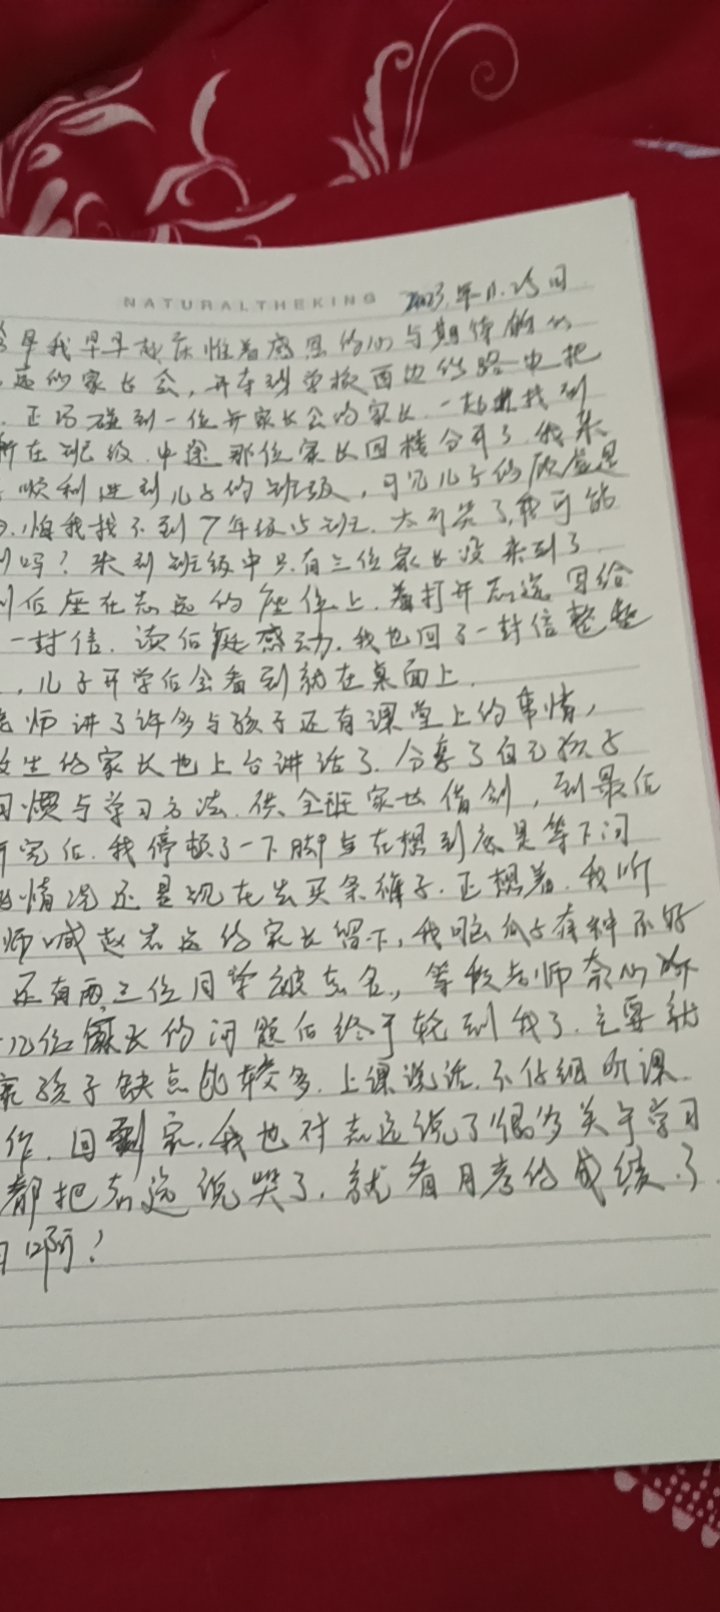 NATURALTHEKING 2023.年11.25日
早我早早起床怀着感恩的心与期待的心
远的家长会,开车到学校西边的路中把
.正巧碰到一位开家长会的家长.一起找到
所在班级.中途那位家长因楼分开了.我来
顺利进到儿子的班级,可见儿子的是
.怕我找不到7年级15班.太可笑了,我可能
吗?来到班级中只有三位家长没来到了.
后座在志远的座位上.着打开志远写给
一封信.读后挺感动.我也回了一封信整整
,儿子开学后会看到就在桌面上.
老师讲了许多与孩子还有课堂上的事情,
生的家长也上台讲话了.分享了自己孩子
习惯与学习方法.供全班家长借剑,到最后
开完后.我停顿了一下脚步在想到底是等下问
情况还是现在去买条裤子.正想着.我听
师喊赵志远的家长留下,我脑瓜子有种不好
还有两三位同学被点名,等秋老师耐心的
几位家长的问题后终于轮到我了.主要就
孩子缺点比较多.上课说话.不仔细听课.
作.回到家.我也对志远说了很多关于学习
都把志远说哭了.就看月考的成绩了.
啊!